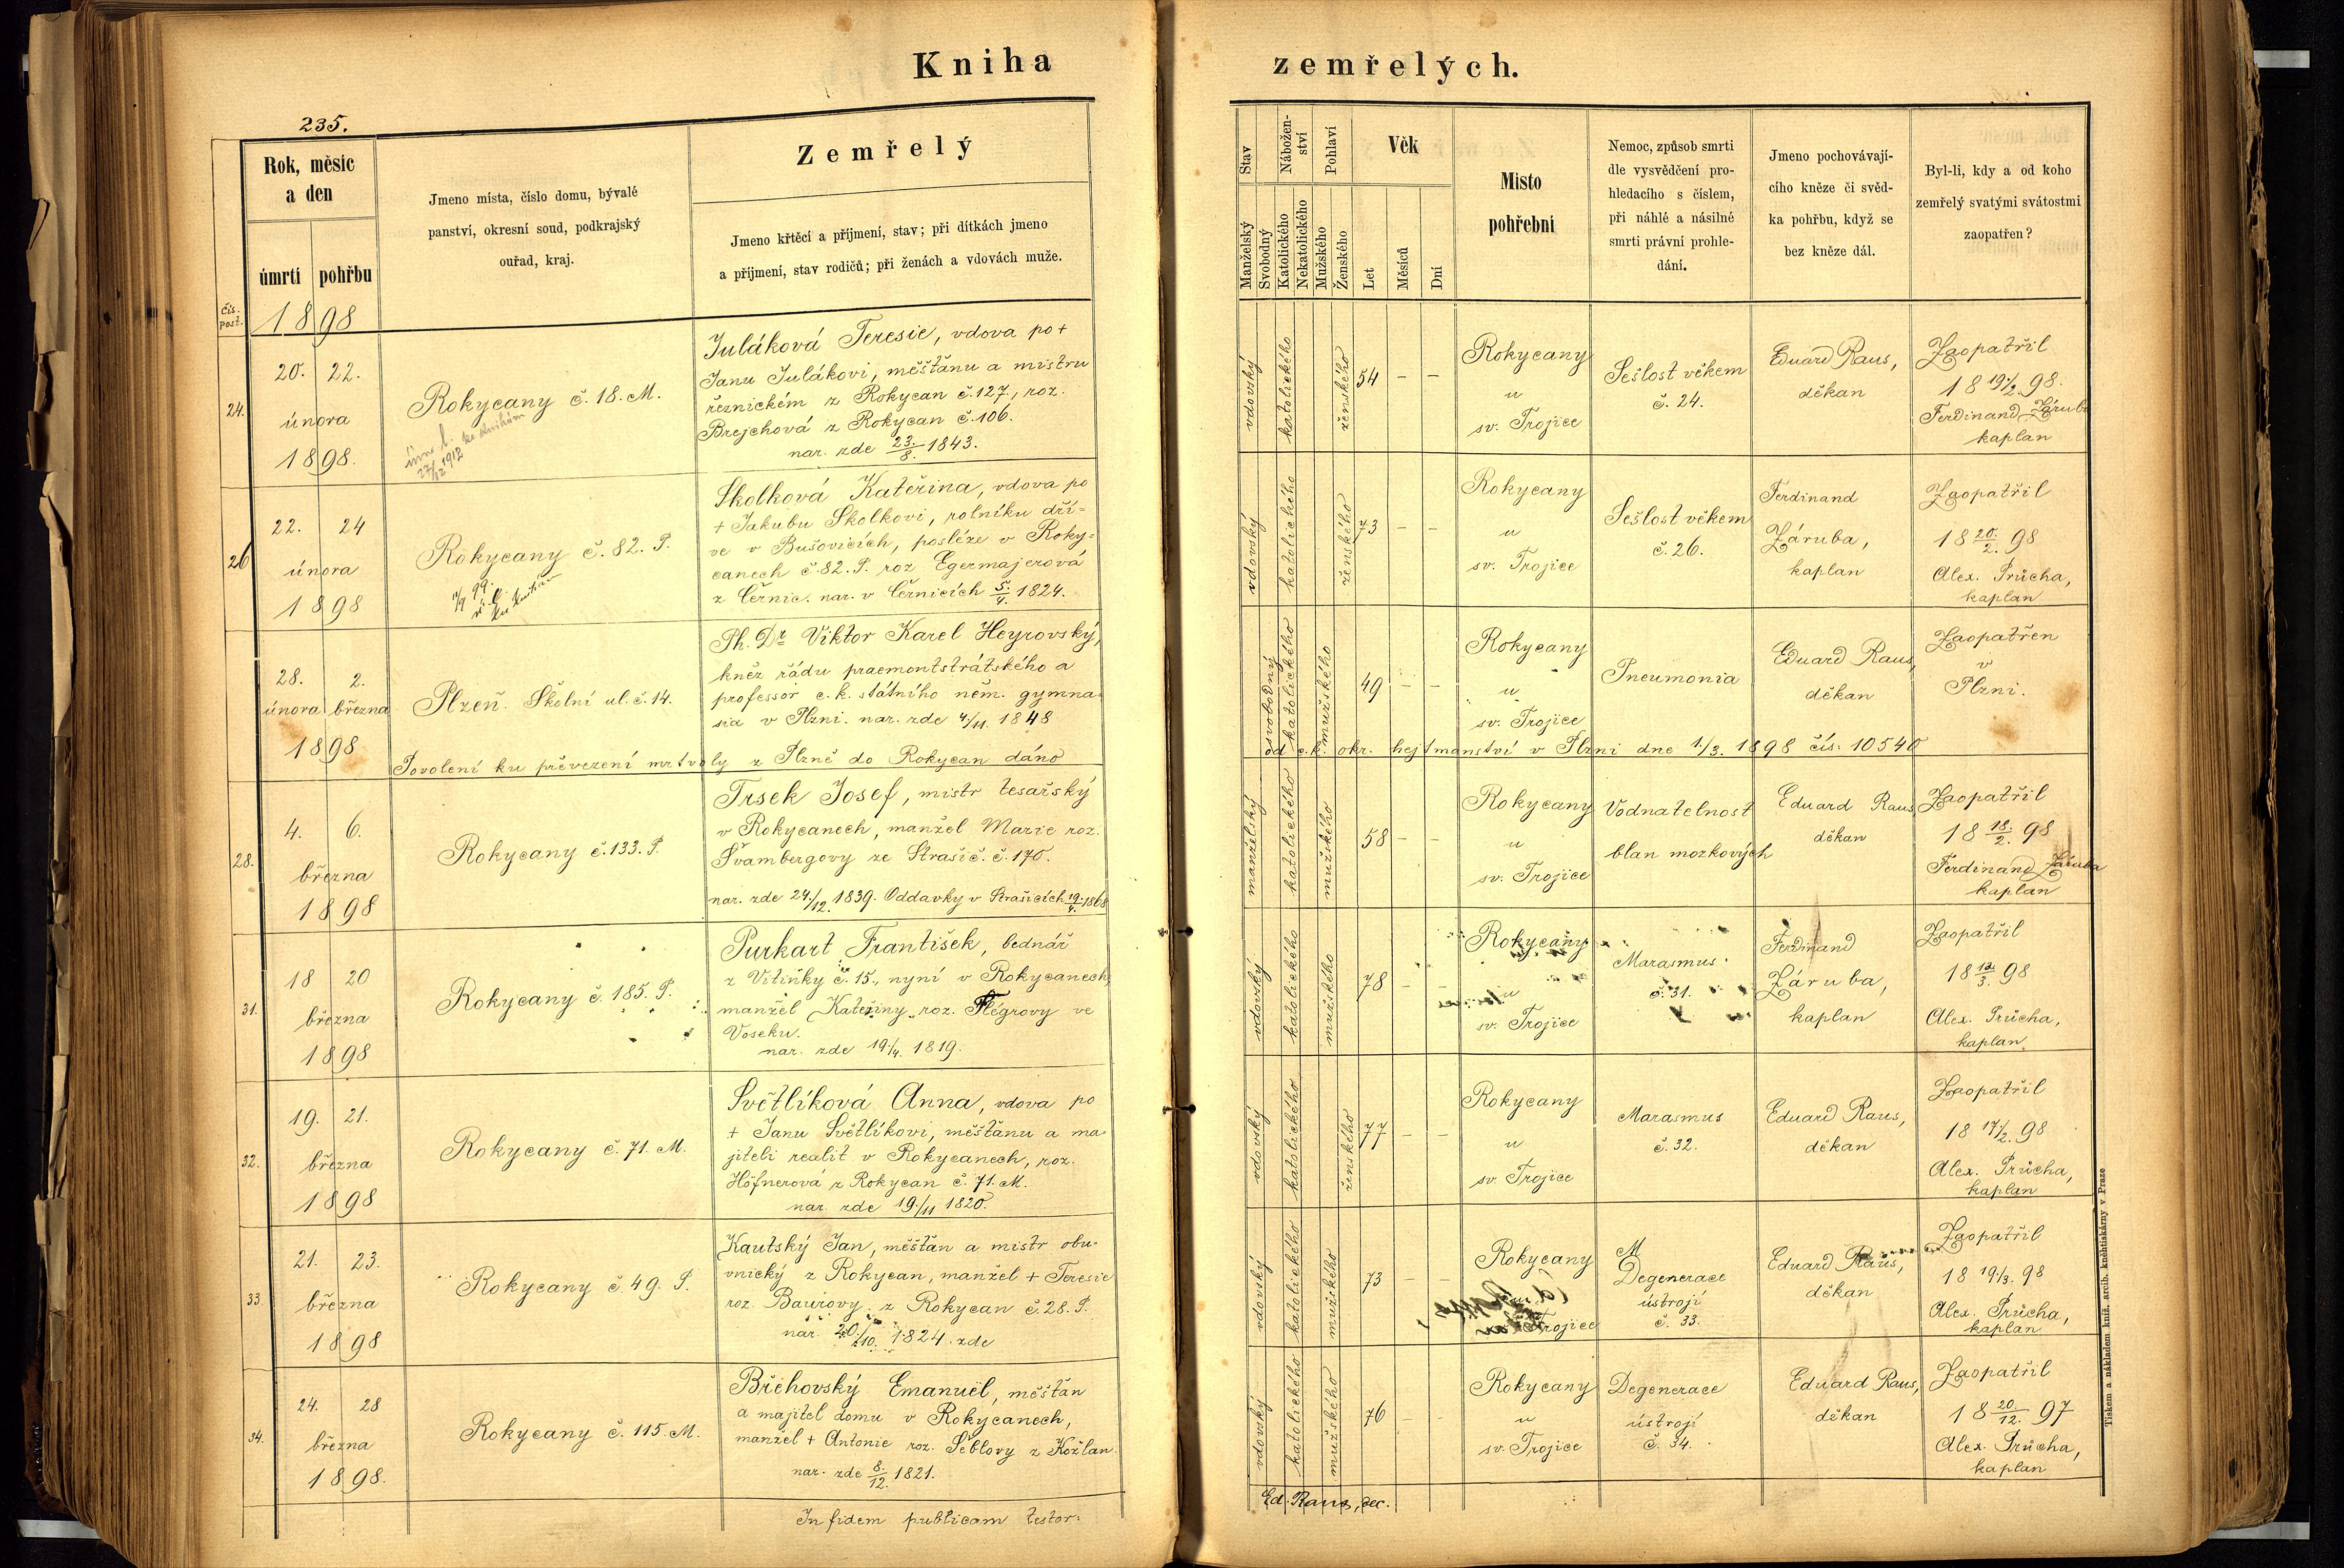 Kniha zemřelých.
235.
Rok, měsíc
a den
úmrtí
pohřbu
Jmeno místa, číslo domu, bývalé
panství, okresní soud, podkrajský
ouřad, kraj.
Zemřelý
Jmeno křtěcí a příjmení, stav; při dítkách jmeno
a příjmení, stav rodičů; při ženách a vdovách muže.
Stav
Manželský
Svobodný
Nábožen-
ství
Katolického
Nekatolického
Pohlaví
Mužského
Ženského
Věk
Let
Měsíců
Dní
Místo
pohřební
Nemoc, způsob smrti
dle vysvědčení pro-
hledacího s číslem,
při náhlé a násilné
smrti právní prohle-
dání.
Jmeno pochovávají-
cího kněze či svěd-
ka pohřbu, když se
bez kněze dál.
Byl-li, kdy a od koho
zemřelý svatými svátostmi
zaopatřen?
čís.
post.
1898
24.
20. 22.
února
1898.
Rokycany č. 18. M.
27/12 1912
Juláková Teresie, vdova po +
Janu Julákovi, měšťanu a mistru
řeznickém z Rokycan č. 127, roz.
Brejchová z Rokycan č. 106.
nar. zde 23./8. 1843.
vdovský
katolického
ženského
54 – –
Rokycany
u
sv. Trojice
Sešlost věkem
č. 24.
Eduard Raus,
děkan
Zaopatřil
18 19/2. 98.
Ferdinand Záruba
kaplan
26
22. 24
února
1898
Rokycany č. 82. P.
Skolková Kateřina, vdova po
+ Jakubu Skolkovi, rolníku dří=
ve v Bušovicích, posléze v Roky=
canech č. 82. P. roz Egermajerová
z Černic. nar. v Černicích 5./4. 1824.
vdovský
katolického
ženského
73 – –
Rokycany
u
sv. Trojice
Sešlost věkem
č. 26.
Ferdinand
Záruba,
kaplan
Zaopatřil
18 20./2. 98
Alex. Průcha,
kaplan
28. 2.
února března
1898
Plzeň. Školní ul. č. 14.
Ph. Dr Viktor Karel Heyrovský,
kněz řádu praemontstrátského a
professor c. k. státního něm. gymna=
sia v Plzni. nar. zde 4./11. 1848
svobodný
katolického
mužského
49 – –
Rokycany
u
sv. Trojice
Pneumonia
Eduard Raus,
děkan
Zaopatřen
v
Plzni.
Povolení ku převezení mrtvoly z Plzně do Rokycan dáno od c. k. okr. hejtmanství v Plzni dne 1./3. 1898 čís. 10540
28.
4. 6.
března
1898
Rokycany č. 133. P.
Trsek Josef, mistr tesařský
v Rokycanech, manžel Marie roz.
Švambergovy ze Strašic. č. 170.
nar. zde 24./12. 1839. Oddavky v Strašicích 19./4. 1868
manželský
katolického
mužského
58 – –
Rokycany
u
sv. Trojice
Vodnatelnost
blan mozkových
Eduard Raus,
děkan
Zaopatřil
18 18./2. 98
Ferdinand Záruba
kaplan
31.
18 20
března
1898
Rokycany č. 185. P.
Purkart František, bednář
z Vitinky č. 15., nyní v Rokycanech,
manžel Kateřiny roz. Flégrovy ve
Voseku.
nar. zde 19./4. 1819.
vdovský
katolického
mužského
78 – –
Rokycany
u
sv. Trojice
Marasmus
č. 31.
Ferdinand
Záruba,
kaplan
Zaopatřil
18 12./3. 98
Alex. Průcha,
kaplan.
32.
19. 21.
března
1898
Rokycany č. 71. M.
Světlíková Anna, vdova po
+ Janu Světlíkovi, měšťanu a ma=
jiteli realit v Rokycanech, roz.
Höfnerová z Rokycan č. 71. M.
nar. zde 19./11 1820.
vdovský
katolického
ženského
77 – –
Rokycany
u
sv. Trojice
Marasmus
č. 32.
Eduard Raus,
děkan
Zaopatřil
18 17/2. 98
Alex. Průcha,
kaplan
33.
21. 23.
března
1898
Rokycany č. 49. P.
Kautský Jan, měšťan a mistr obu=
vnický z Rokycan, manžel + Teresie
roz. Baurovy z Rokycan č. 28. P.
nar. 20./10. 1824. zde
vdovský
katolického
mužského
73 – –
Rokycany
Trojice
M
Degenerace
ústrojí
č. 33.
Eduard Raus,
děkan
Zaopatřil
18 19/3. 98
Alex. Průcha,
kaplan
34.
24. 28
března
1898.
Rokycany č. 115. M.
Břehovský Emanuël, měšťan
a majitel domu v Rokycanech,
manžel + Antonie roz. Šeblovy z Kožlan.
nar. zde 8./12. 1821.
vdovský
katolického
mužského
76 – –
Rokycany
u
sv. Trojice
Degenerace
ústrojí
č. 34.
Eduard Raus,
děkan
Zaopatřil
18 20./12. 97
Alex. Průcha,
kaplan
In fidem publicam testor:
Ed. Raus, dec.
Tiskem a nákladem kníž. arcib. kněhtiskárny v Praze